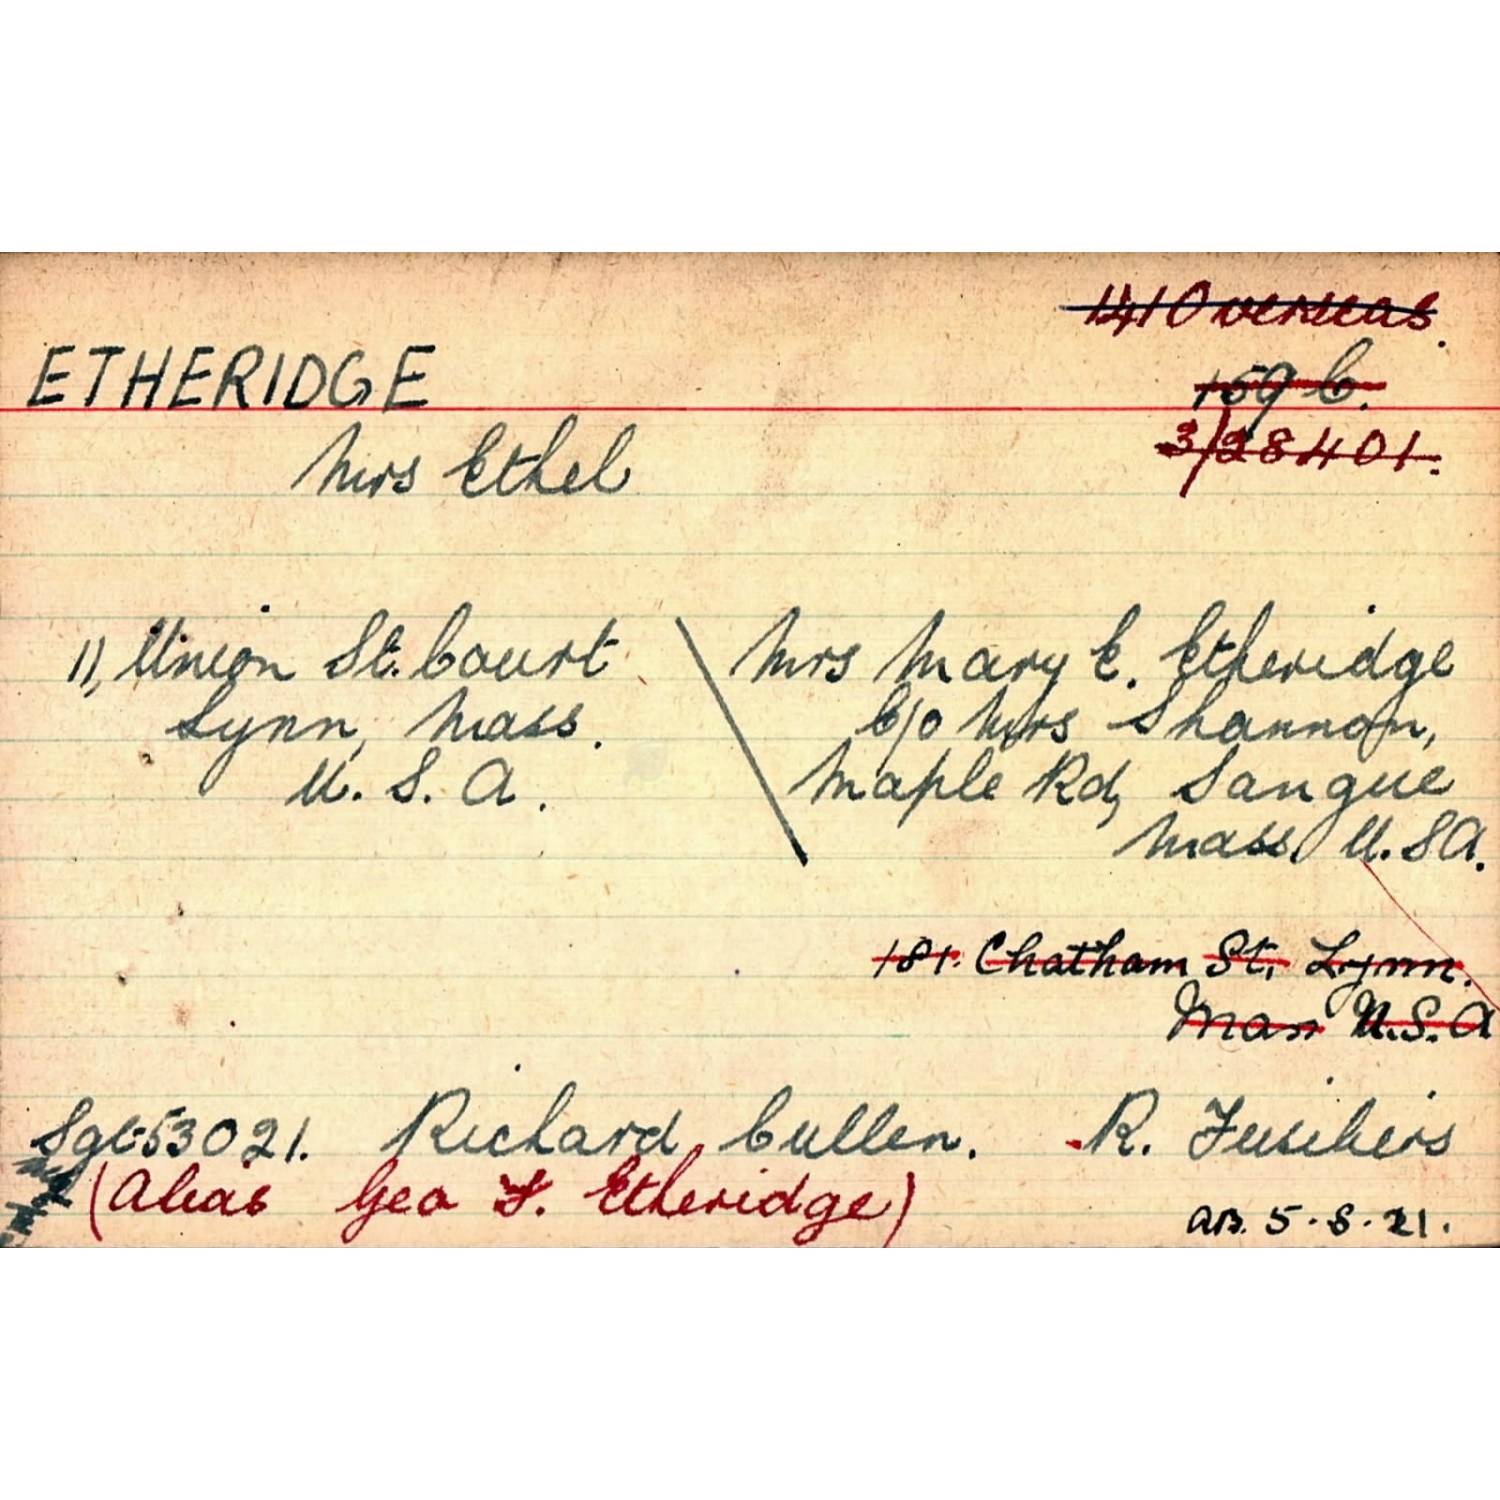 141 Overseas.
ETHERIDGE
159 C.
Mrs Ethel
3/28401.
11, Union St. Court
Lynn, Mass.
U. S. A.
Mrs Mary E. Etheridge
C/o Mrs Shannon,
Maple Rd, Sangue
Mass. U.S.A.
181. Chatham St, Lynn.
Mass U.S.A
Sgt 53021. Richard Cullen. R. Fusiliers
(Alias Geo F. Etheridge)
AB. 5.8.21.